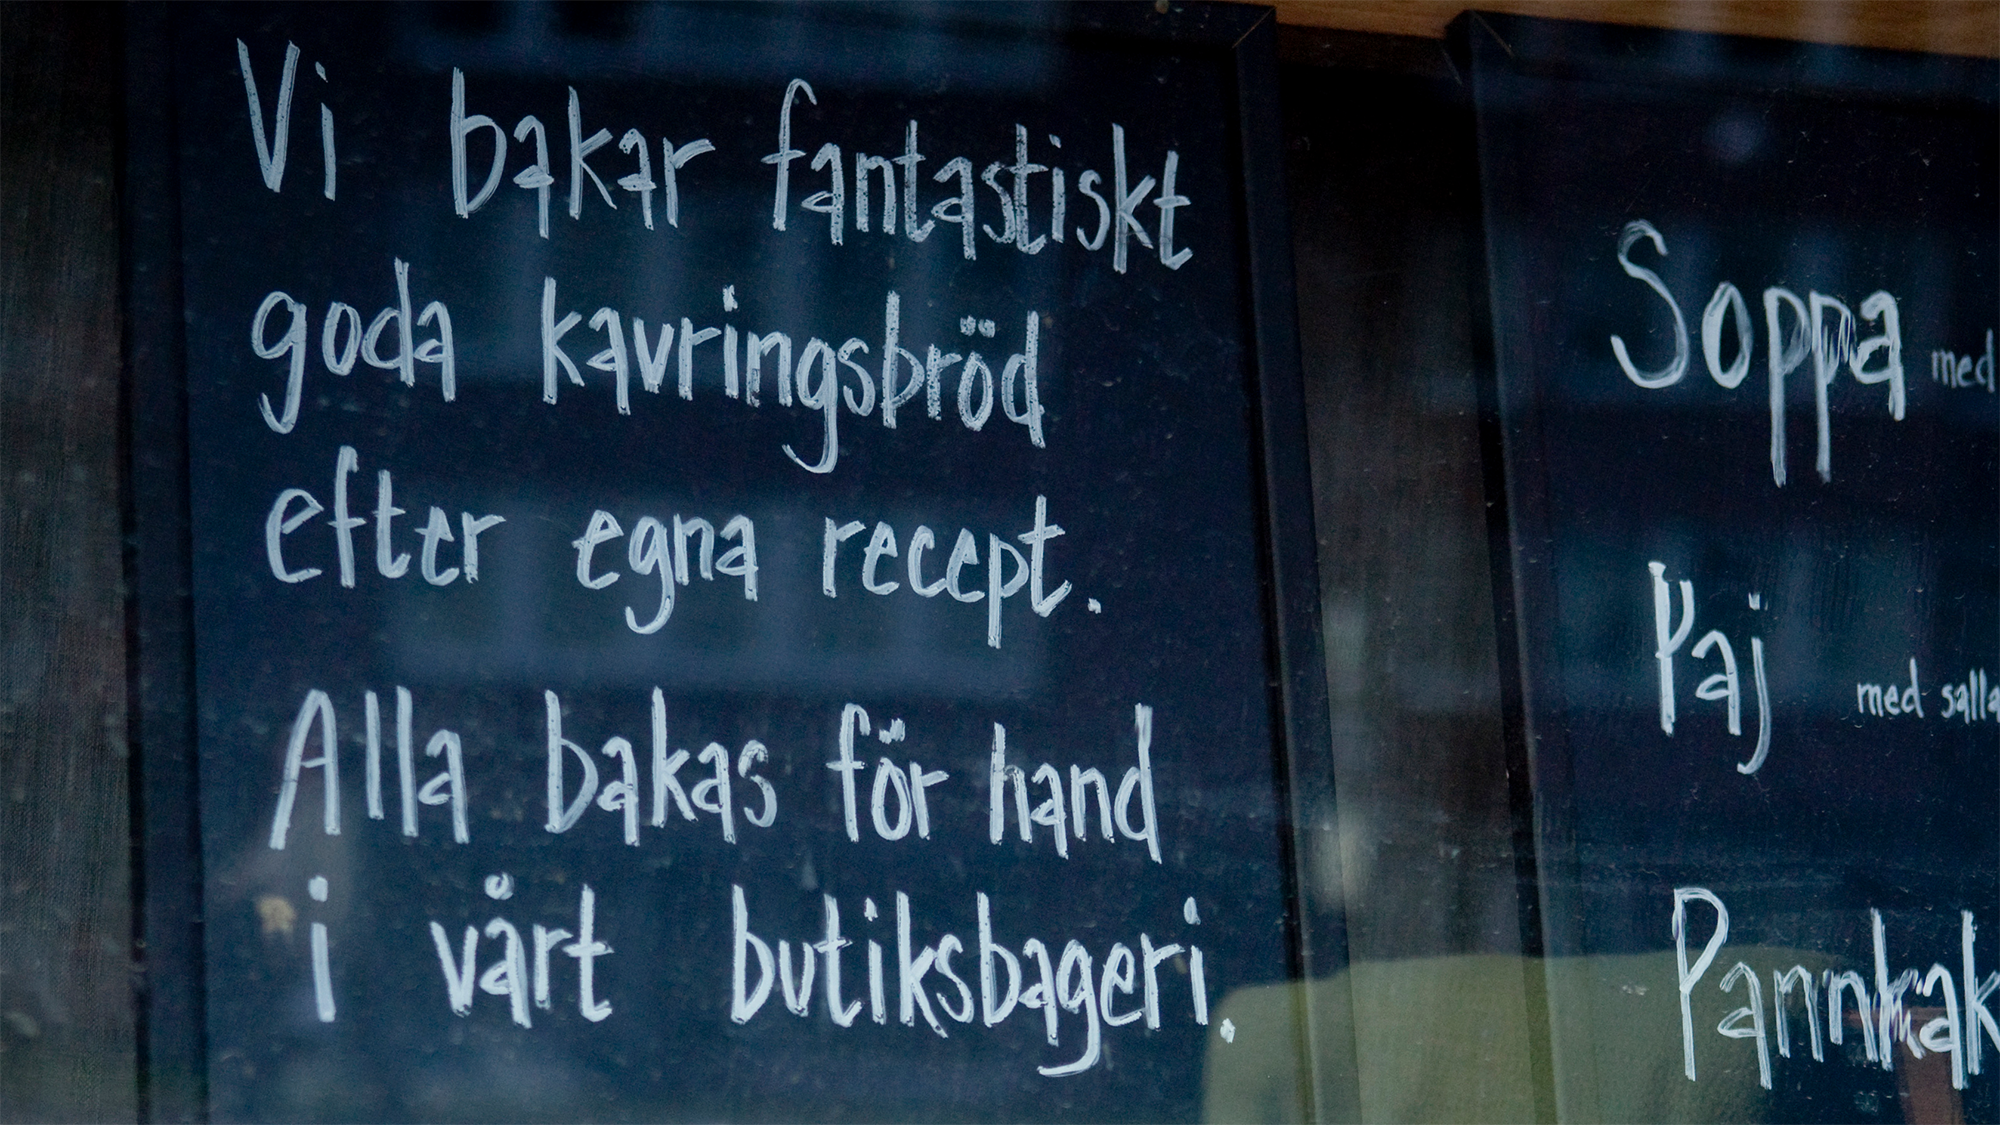 Vi bakar fantastiskt
goda kavringsbröd
efter egna recept.
Alla bakas för hand
i vårt butiksbageri.
Soppa med
Paj med salla
Pannkak